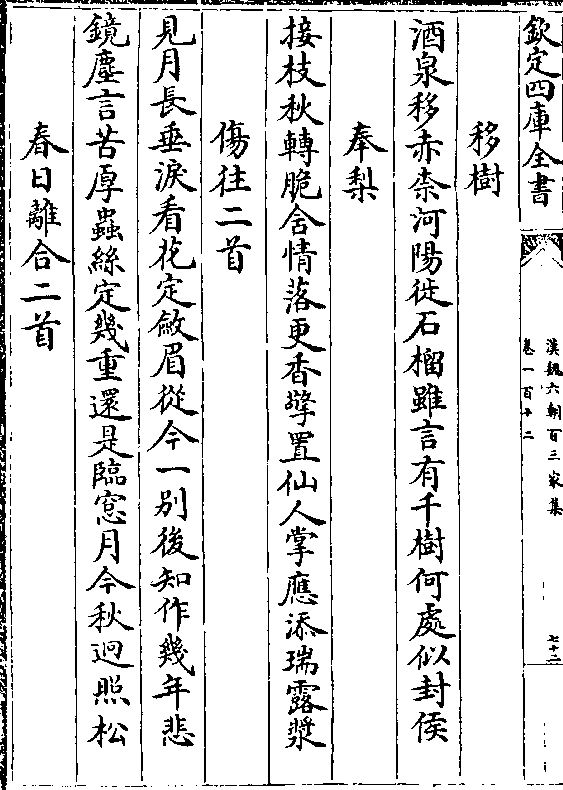 欽定四庫全書
漢魏六朝百三家集
卷一百十二
七十二
移樹
酒泉移赤柰河陽徙石榴雖言有千樹何處似封侯
奉梨
接枝秋轉脆含情落更香擎置仙人掌應添瑞露漿
傷往二首
見月長垂淚看花定斂眉從今一別後知作幾年悲
鏡塵言苦厚蟲絲定幾重還是臨窓月今秋迥照松
春日離合二首